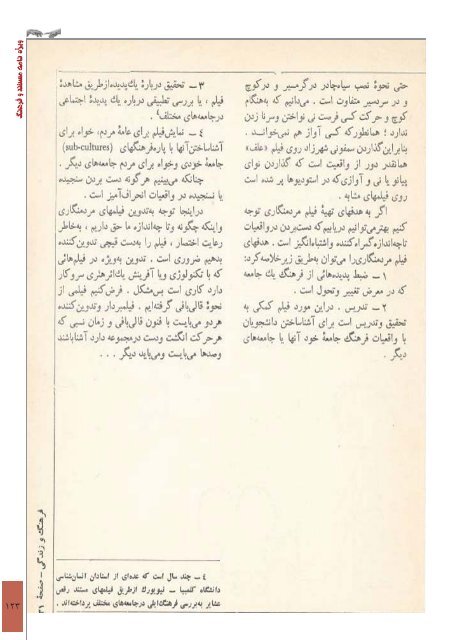 ویژه نامه مستند و فرهنگ
حتی نحوهٔ نصب سیاه‌چادر در گرمسیر و در کوچ
و در سردسیر متفاوت است . می‌دانیم که به‌هنگام
کوچ و حرکت کسی فرصت نی نواختن و سرنا زدن
ندارد ؛ همانطورکه کسی آواز هم نمی‌خوانــد .
بنابراین گذاردن سمفونی شهرزاد روی فیلم «علف»
همانقدر دور از واقعیت است که گذاردن نوای
پیانو یا نی و آوازی‌که در استودیوها پر شده است
روی فیلمهای مشابه .
اگر به هدفهای تهیهٔ فیلم مردمنگاری توجه
کنیم بهتر می‌توانیم دریابیم که دست‌بردن در واقعیات
تاچه‌اندازه گمراه کننده و اشتباه‌انگیز است . هدفهای
فیلم مردمنگاری را می‌توان به‌طریق زیر خلاصه‌کرد:
۱ – ضبط پدیده‌هائی از فرهنگ یك جامعه
که در معرض تغییر و تحول است .
۲ – تدریس . در این مورد فیلم کمکی به
تحقیق و تدریس است برای آشناساختن دانشجویان
با واقعیات فرهنگ جامعهٔ خود آنها یا جامعه‌های
دیگر .
۳ – تحقیق دربارهٔ یك‌پدیده ازطریق مشاهدهٔ
فیلم ، یا بررسی تطبیقی درباره یك پدیدهٔ اجتماعی
درجامعه‌های مختلف⁴ .
٤ – نمایش‌فیلم برای عامهٔ مردم، خواه برای
آشناساختن آنها با پاره‌فرهنگهای (sub-cultures)
جامعهٔ خودی وخواه برای مردم جامعه‌های دیگر .
چنانکه می‌بینیم هرگونه دست بردن سنجیده
یا نسنجیده در واقعیات انحراف‌آمیز است .
دراینجا توجه به‌تدوین فیلمهای مردمنگاری
واینکه چگونه وتا چه‌اندازه ما حق داریم ، به‌خاطر
رعایت اختصار ، فیلم را به‌دست قیچی تدوین‌کننده
بدهیم ضروری است . تدوین به‌ویژه در فیلم‌هائی
که با تکنولوژی ویا آفرینش یك‌اثرهنری سروکار
دارد کاری است بس‌مشکل . فرض‌کنیم فیلمی از
نحوهٔ قالی‌بافی گرفته‌ایم . فیلمبردار وتدوین‌کننده
هردو می‌بایست با فنون قالی‌بافی و زمان نسبی که
هرحرکت انگشت ودست درمجموعه دارد آشناباشند
وصدها می‌بایست ومی‌باید دیگر . . .
٤ – چند سال است که عده‌ای از استادان انسان‌شناسی
دانشگاه کلمبیا – نیویورك ازطریق فیلمهای مستند رقص
عشایر به‌بررسی فرهنگ‌ایلی درجامعه‌های مختلف پرداخته‌اند .
فرهنگ و زندگی – صفحهٔ ۳۱
۱۲۳